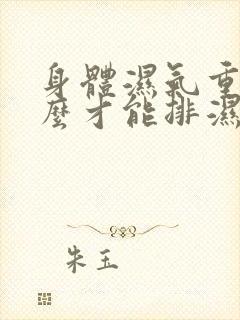 身體濕氣重
麼才能排濕
朱玉